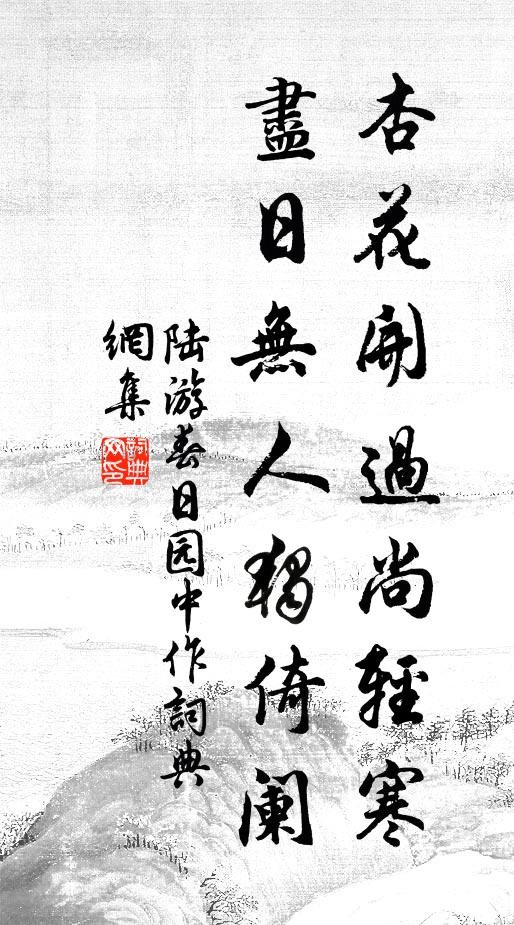 杏花開過尚輕寒
盡日無人獨倚闌
陆游春日园中作詞典
網集
詞典网印